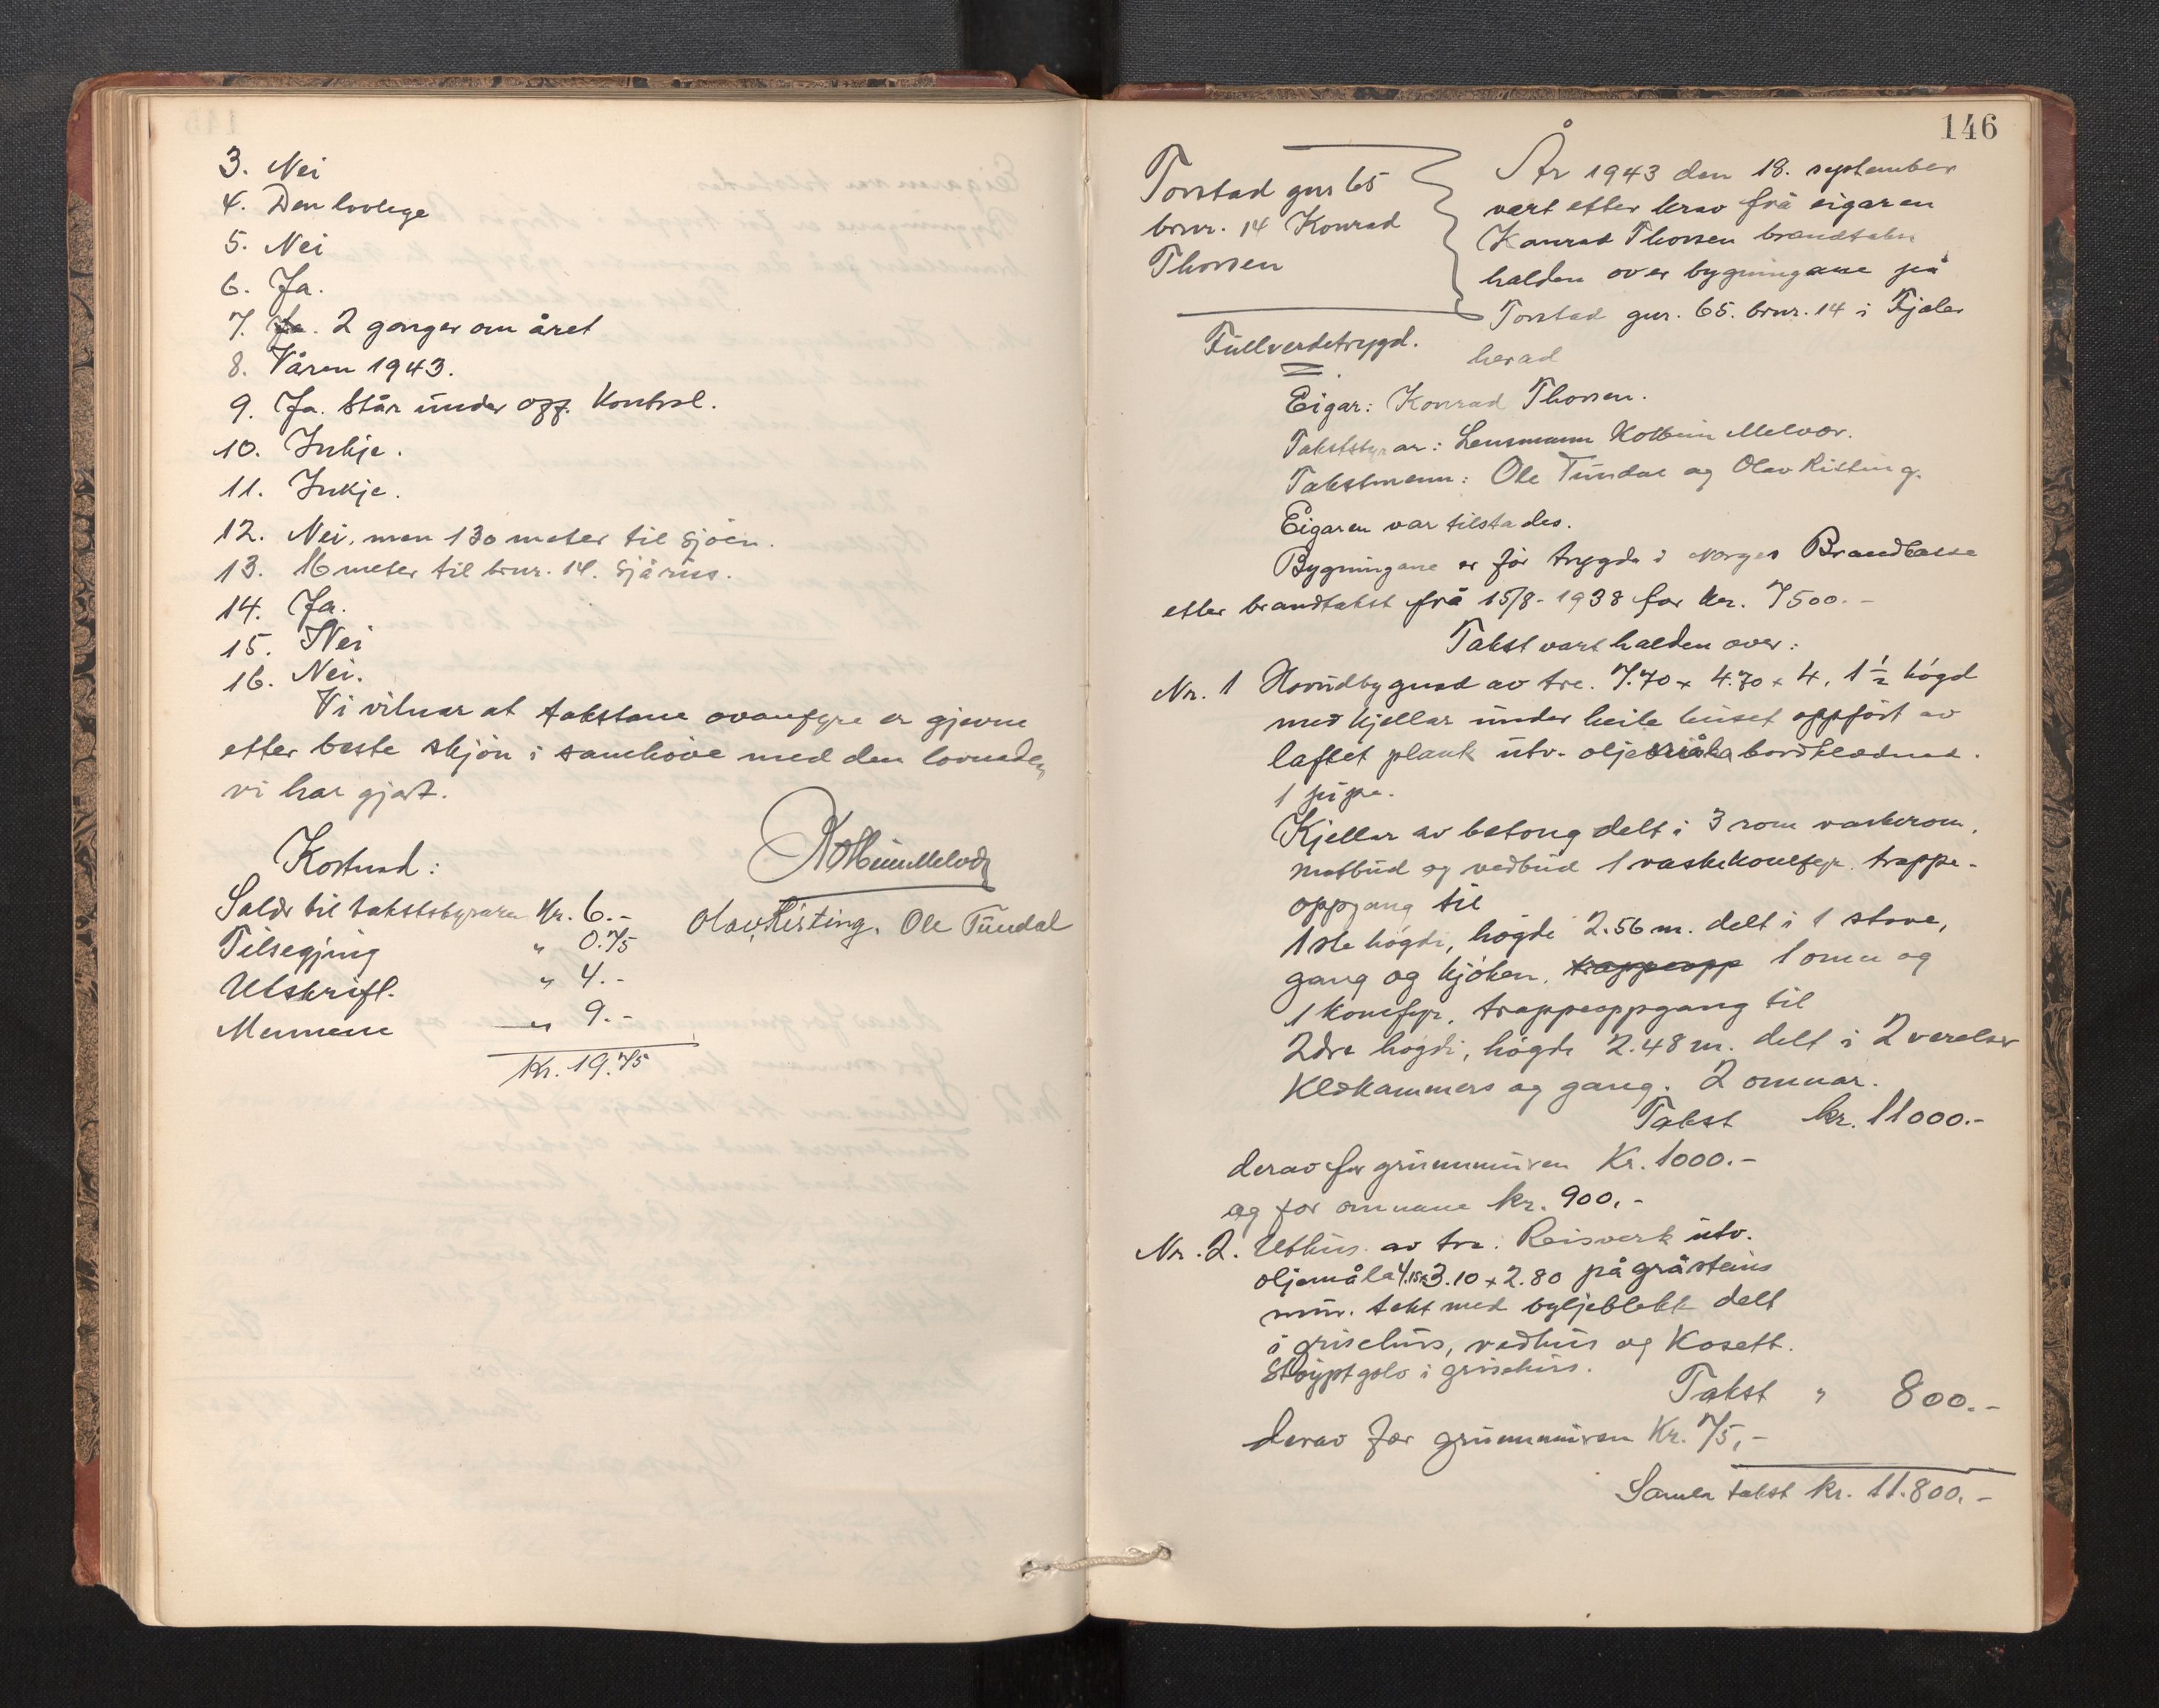 3. Nei
4. Den lovlege
5. Nei
6. Ja.
7. Ja. 2 gonger om året
8. Våren 1943.
9. Ja. Står under off. Kontrol.
10. Inkje.
11. Inkje.
12. Nei, men 130 meter til sjöen.
13. 16 meter til brnr. 14. Sjårus.
14. Ja.
15. Nei
16. Nei.
Vi vitnar at takstane ovanfyre er gjevne
etter beste skjön i samhöve med den lovnaden
vi har gjort.
Kostnad:
Salær til takststyraren Kr. 6.-
Tilsegjing " 0.75
Utskrift. " 4.-
Mennene " 9.-
Kr. 19.75
Olav Risting. Ole Tundal
146
Torstad gnr 65
brnr. 14 Konrad
Thorsen
Fullverdetrygd.
År 1943 den 18. september
vart etter krav frå eigaren
Konrad Thorsen brandtakst
halden over bygningane på
Torstad gnr. 65. brnr. 14 i Fjaler
herad
Eigar: Konrad Thorsen.
Takststyrar: Lensmann Kolbein Melvær.
Takstmenn: Ole Tundal og Olav Risting.
Eigaren var tilstades.
Bygningane er för trygda i Norges Brandkasse
etter brandtakst frå 15/8-1938 for kr. 7500.-
Takst vart halden over:
Nr. 1 Hovudbygnad av tre. 7.70 x 4.70 x 4, 1 1/2 högd
med kjellar under heile huset oppfört av
laftet plank utv. oljemåla bordklædned.
1 pipe.
Kjellar av betong delt i 3 rom vaskerom,
matbud og vedbud 1 vaskekomfyr. trappe-
oppgang til
1ste högdi, högde 2.56 m. delt i 1 stove,
gang og kjöken, trappeopp 1 omn og
1 komfyr, trappeoppgang til
2dre högdi, högde 2.48 m. delt i 2 verelser
Klekammers og gang. 2 omnar.
Takst kr. 11000.-
derav for grunnmuren Kr. 1000.-
og for omnane kr. 900,-
Nr. 2. Uthus av tre. Reisverk utv.
oljemåla 4.15x3.10 x 2.80 på gråsteins
mur. tekt med byljeblekk delt
i grisehus, vedhus og Kosett.
Stöypt golv i grisehus.
Takst " 800.-
derav for grunnmuren Kr. 75,-
Samla takst kr. 11.800.-